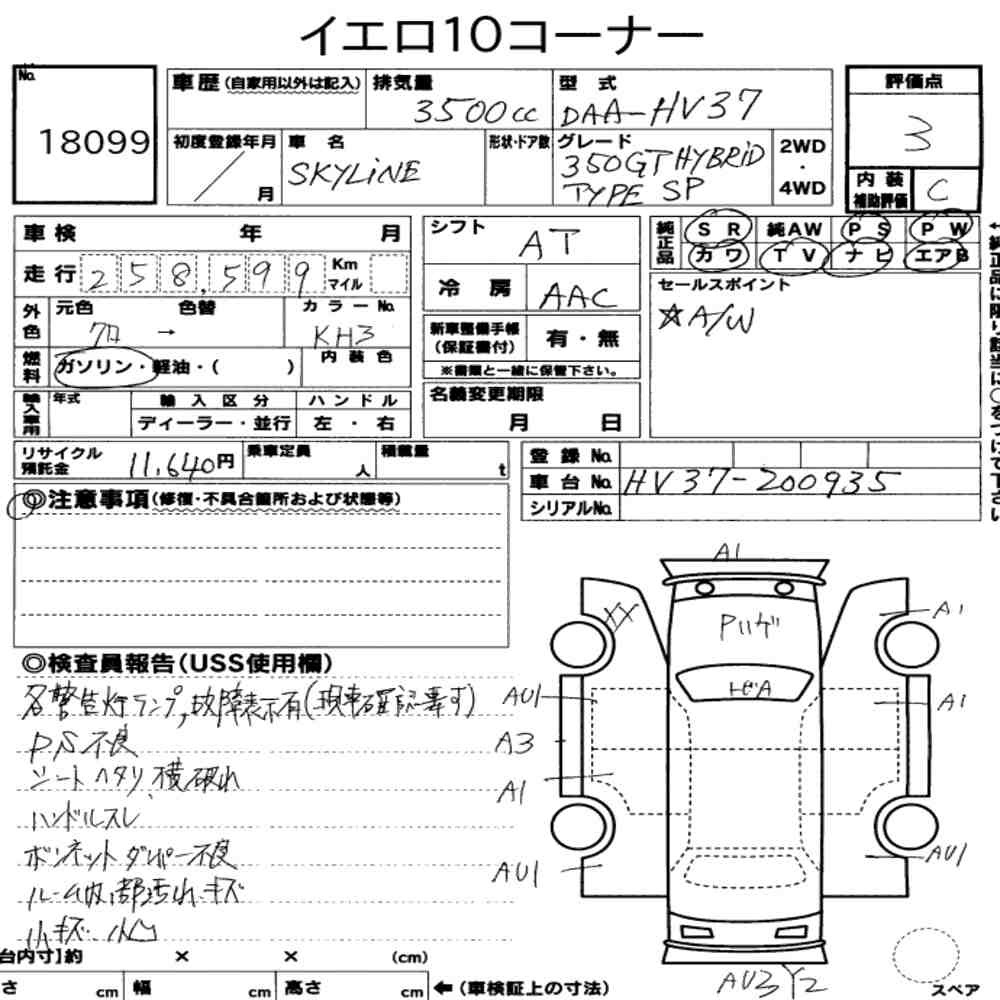 イエロ10コーナー
No. 18099
車歴(自家用以外は記入) 排気量 3500cc 型式 DAA-HV37
初度登録年月 / 月 車名 SKYLiNE 形状・ドア数 グレード 350GT HYBRiD TYPE SP 2WD・4WD
評価点 3
内装補助評価 C
車検 年 月
走行 258,599 Km マイル
外色 元色 クロ → 色替 カラーNo. KH3
内装色
燃料 ガソリン・軽油・( )
輸入車用 年式 輸入区分 ハンドル
ディーラー・並行 左・右
シフト AT
冷房 AAC
新車整備手帳(保証書付) 有・無
※書類と一緒に保管下さい。
名義変更期限 月 日
純正品 SR 純AW PS PW
カワ TV ナビ エアB
セールスポイント
☆A/W
リサイクル預託金 11,640円 乗車定員 人 積載量 t
登録No.
車台No. HV37-200935
シリアルNo.
◎注意事項(修復・不具合箇所および状態等)
◎検査員報告(USS使用欄)
各警告灯ランプ,故障表示有(現車確認要す)
P.S不良
シートヘタリ、横破れ
ハンドルスレ
ボンネットダンパー不良
ルーム内部汚れ.キズ
小キズ.小凹
A1
XX
Pハゲ
A1
トビA
AU1
A1
A3
A1
AU1
AU1
AU3 Y2
スペア
台内寸】約 × × (cm)
さ cm 幅 cm 高さ cm ←(車検証上の寸法)